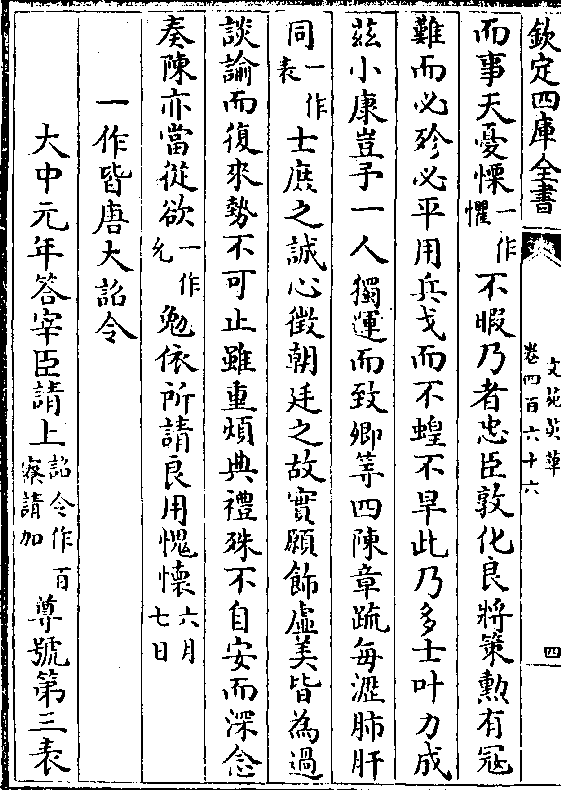 欽定四庫全書
文苑英華
卷四百六十六
四
而事天憂慄一作懼不暇乃者忠臣敦化良將策勲有冦
難而必殄必平用兵戈而不蝗不旱此乃多士叶力成
兹小康豈予一人獨運而致卿等四陳章疏每瀝肺肝
同一作表士庶之誠心徵朝廷之故實願飾虚美皆為過
談諭而復來勢不可止雖重煩典禮殊不自安而深念
奏陳亦當從欲一作允勉依所請良用愧懷六月七日
一作皆唐大詔令
大中元年答宰臣請上詔令作百寮請加尊號第三表